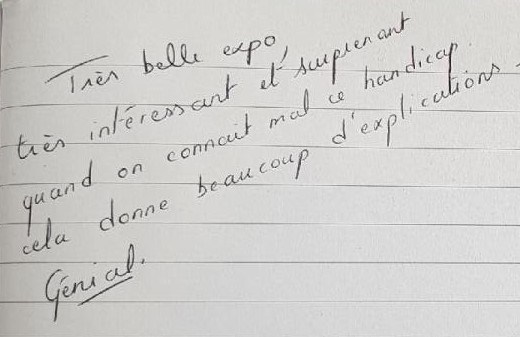 Très belle expo,
très intéressant et surprenant
quand on connait mal ce handicap.
cela donne beaucoup d'explications.
Génial.